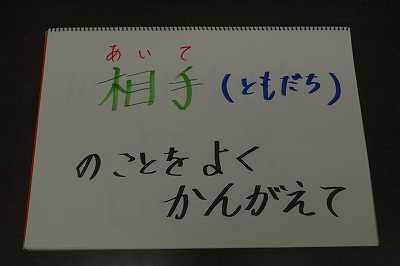 あいて
相手(ともだち)
のことをよく
かんがえて